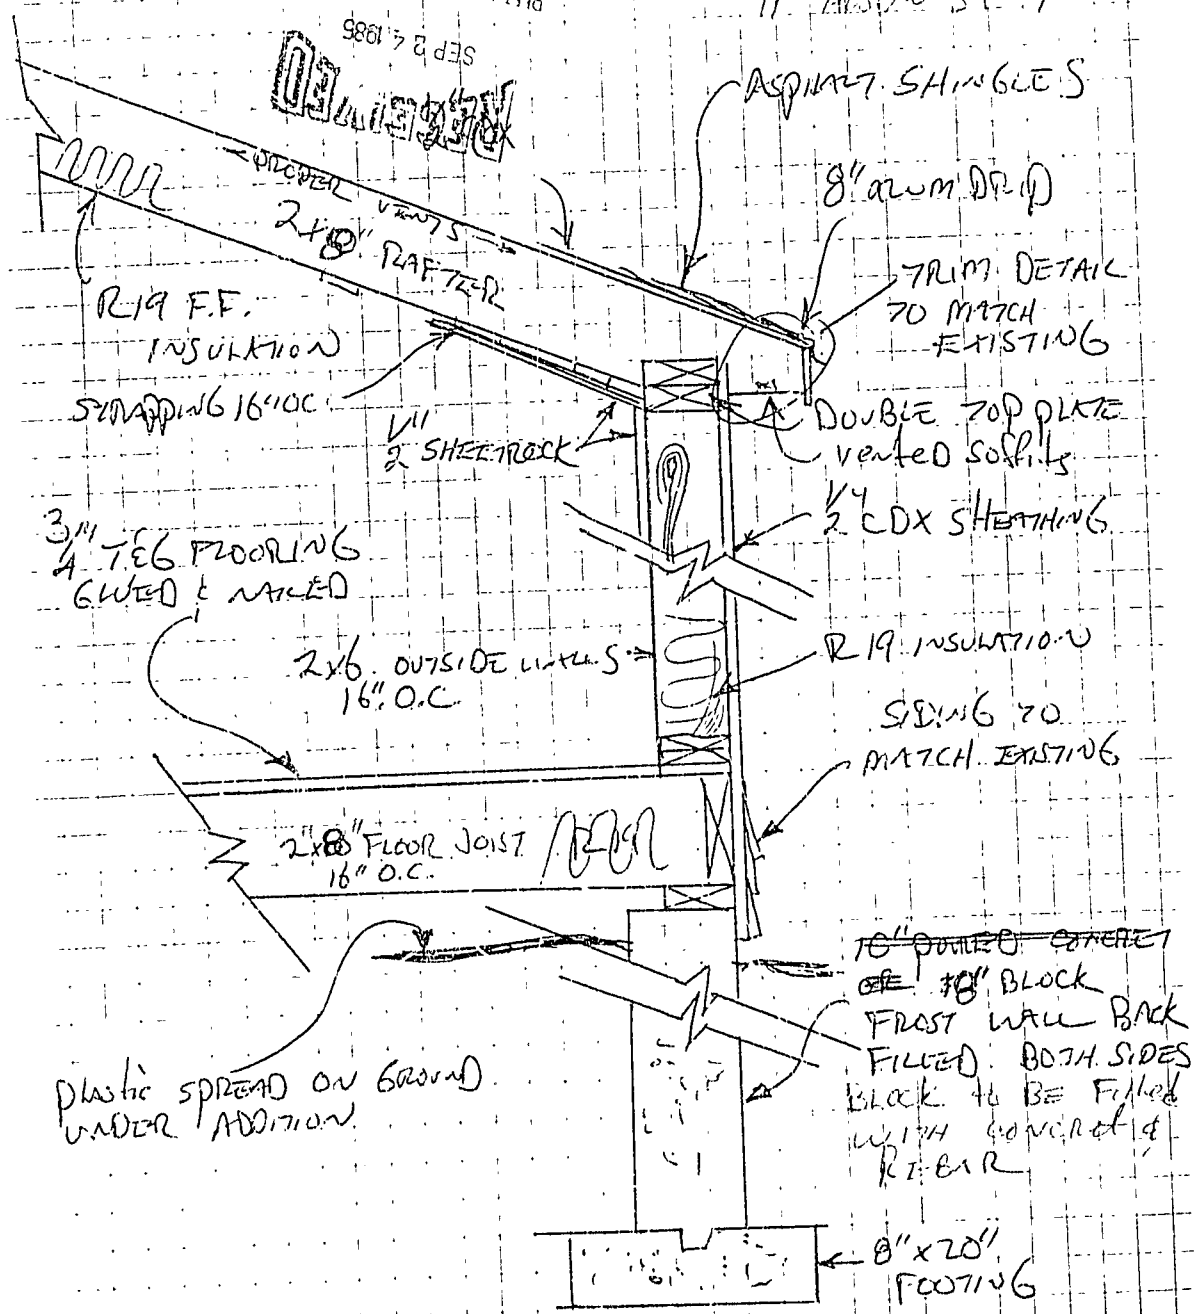 SEP 24 1985
RECEIVED
ASPHALT SHINGLES
8" alum DRIP
PROPER VENTS
2x8" RAFTER
TRIM DETAIL
TO MATCH
EXISTING
R19 F.F.
INSULATION
STRAPPING 16" OC
1/2" SHEETROCK
DOUBLE TOP PLATE
vented Soffits
1/2" CDX SHEATHING
3/4" T&G FLOORING
GLUED & NAILED
2x6 OUTSIDE WALLS
16" O.C.
R19 INSULATION
SIDING TO
MATCH EXISTING
2"x8" FLOOR JOIST
16" O.C.
10" POURED CONCRET
OR 8" BLOCK
FROST WALL BACK
FILLED BOTH SIDES
BLOCK to BE Filled
WITH CONCRET &
REBAR
Plastic SPREAD ON GROUND
UNDER ADDITION
8" x 20"
FOOTING